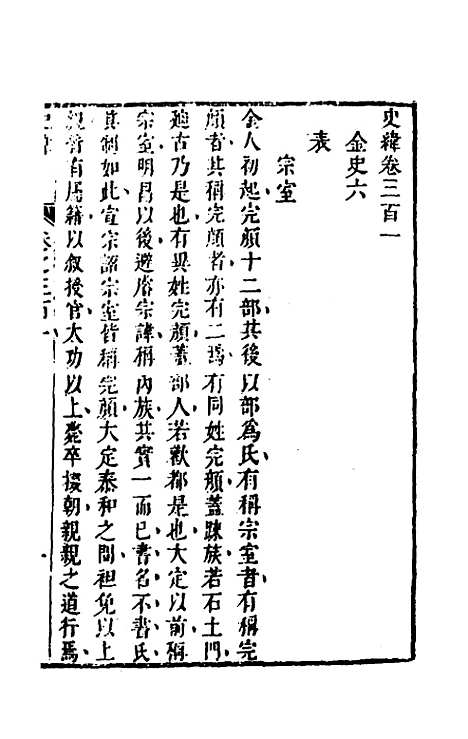 史緯卷三百一
金史六
表
宗室
金人初起完顏十二部其後以部爲氏有稱宗室者有稱完
顏者其稱完顏者亦有二焉有同姓完顏蓋疎族若石土門
廸古乃是也有異姓完顏蓋部人若歡都是也大定以前稱
宗室明昌以後避睿宗諱稱內族其實一而已書名不書氏
其制如此宣宗詔宗室皆稱完顏大定泰和之間袒免以上
親皆有屬籍以敘授官大功以上薨卒輟朝親親之道行焉
史緯
卷之三百一
一